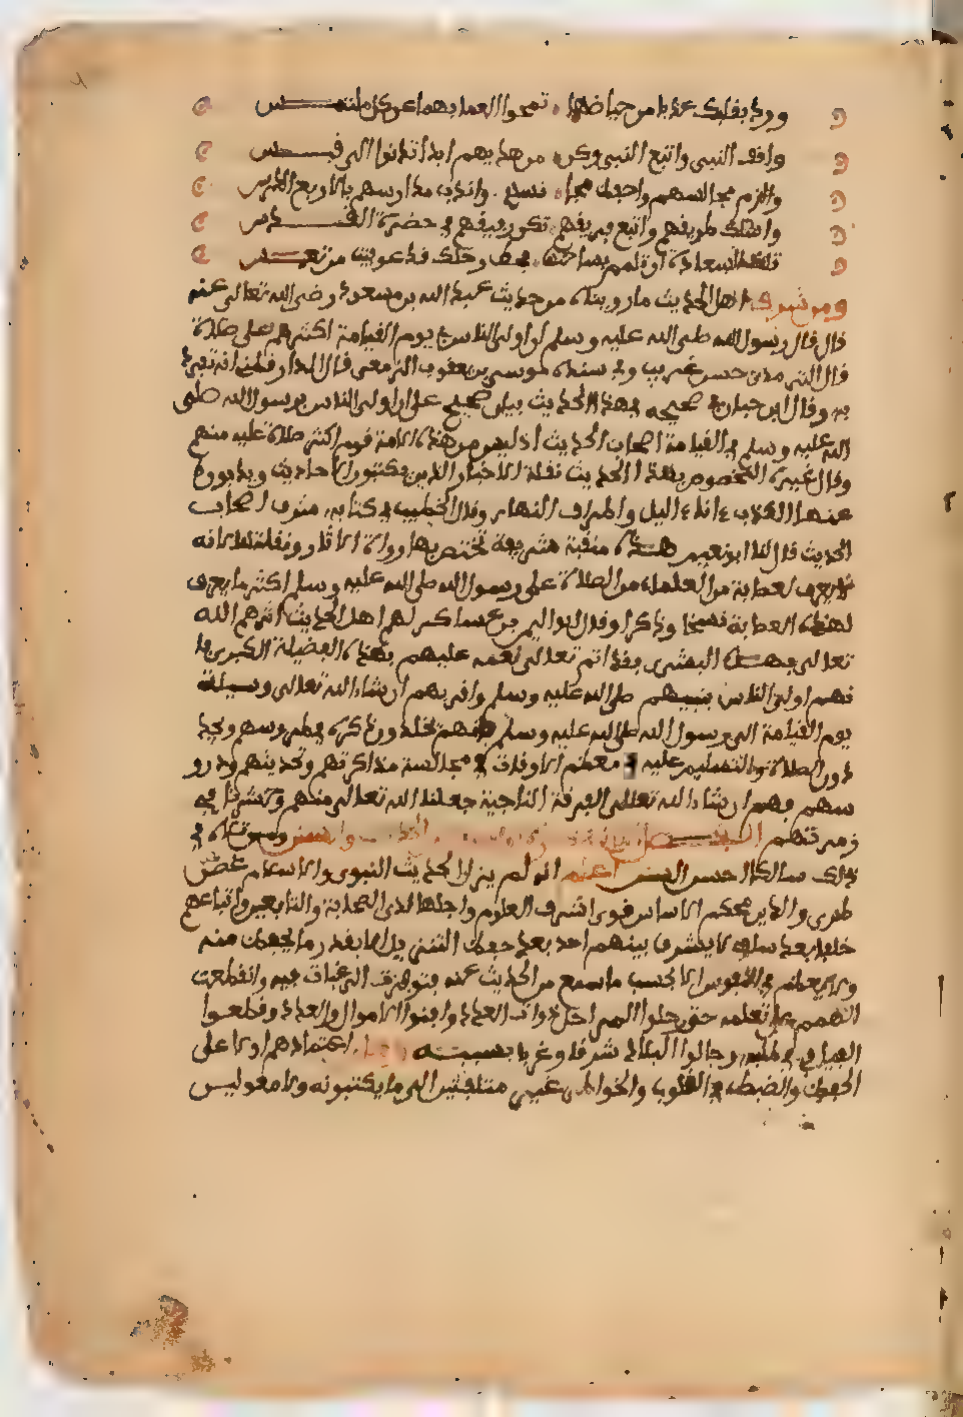 ورد بقلبك عذبا من حياضها تمحوا العدا بهما عن كل ملتمس
واقف النبي واتبع النبي وكن من هديهم ابدا تدنوا الى قبس
والزم مجالسهم واحفظ مجالسهم واندب مدارسهم بالاربع الدرس
واسلك طريقهم واتبع فريقهم تكن رفيقهم في حضرة القدس
تلك السعادة ان تلمم بساحتها فحط رحلك قد عوفيت من تعس
ومن شرف اهل الحديث ما رويناه من حديث عبد الله بن مسعود رضي الله تعالى عنه
قال قال رسول الله صلى الله عليه وسلم ان اولى الناس بي يوم القيامة اكثرهم علي صلاة
قال الترمذي حسن غريب وفي سنده موسى بن يعقوب الزمعي قال الدارقطني انه تفرد
به وقال ابن حبان في صحيحه في هذا الحديث بيان صحيح على ان اولى الناس برسول الله صلى
الله عليه وسلم في القيامة اصحاب الحديث اذ ليس من هذه الامة قوم اكثر صلاة عليه منهم
وقال غيره المخصوص بهذا الحديث نقلة الاخبار الذين يكتبون الاحاديث ويذبون
عنها الكذب ءاناء اليل واطراف النهار وقال الخطيب في كتابه شرف اصحاب
الحديث قال لنا ابو نعيم هذه منقبة شريفة تختص بها رواة الاثار ونقلتها لانه
لا يعرف لعصابة من العلماء من الصلاة على رسول الله صلى الله عليه وسلم اكثر ما يعرف
لهذه العصابة نسخا وذكرا وقال ابو اليمن بن عساكر ليهن اهل الحديث كثرهم الله
تعالى بهذه البشرى فقد اتم تعالى نعمه عليهم بهذه الفضيلة الكبرى
فهم اولى الناس بنبيهم صلى الله عليه وسلم واقربهم ان شاء الله تعالى وسيلة
يوم القيامة الى رسول الله صلى الله عليه وسلم فانهم يخلدون ذكره في طروسهم ويجد
دون الصلاة والتسليم عليه في معظم الاوقات في مجالسة مذاكرتهم وتحديثهم ودرو
سهم فهم ان شاء الله تعالى الفرقة الناجية جعلنا الله تعالى منهم وحشرنا في
زمرتهم
ذلك سالكا احسن السنن اعلم انه لم يزل الحديث النبوي والاسلام غض
طري والدين محكم الاساس قوى اشرف العلوم واجلها لدى الصحابة والتابعين واتباعهم
خلفا بعد سلف لا يشرف بينهم احد بعد حفظ التنزيل الا بقدر ما يحفظ منه
ولا يعظم في النفوس الا بحسب ما سمع من الحديث عنه فتوفرت الرغبات فيه وانقطعت
الهمم على تعلمه حتى رحلوا المراحل ذوات العدد وافنوا الاموال والعدد وقطعوا
الفيافي في طلبه وجالوا البلاد شرقا وغربا بسببه وكان اعتمادهم اولا على
الحفظ والضبط في القلوب والخواطر غير ملتفتين الى ما يكتبونه ولا معولين